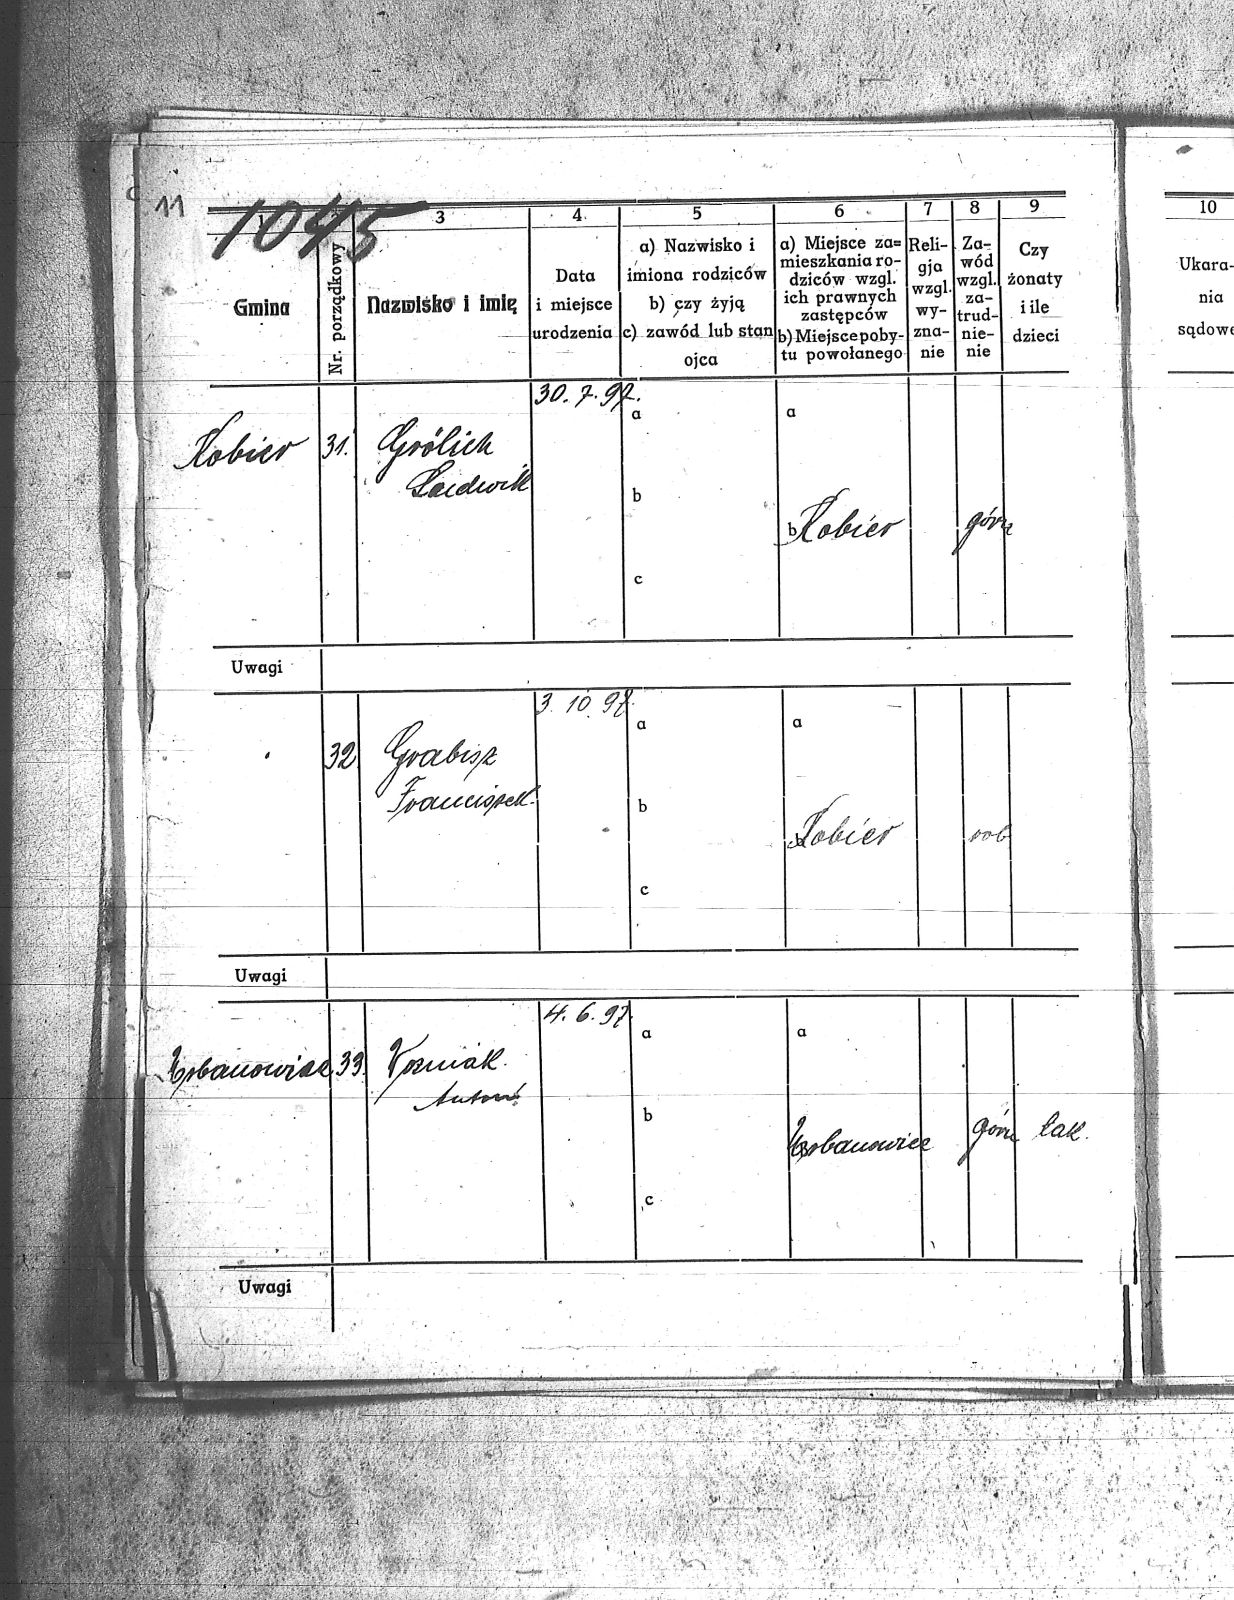 11
1045
3 4 5 6 7 8 9 10
Gmina
Nr. porządkowy
Nazwisko i imię
Data
i miejsce
urodzenia
a) Nazwisko i
imiona rodziców
b) czy żyją
c) zawód lub stan
ojca
a) Miejsce za=
mieszkania ro-
dziców wzgl.
ich prawnych
zastępców
b) Miejsce poby-
tu powołanego
Reli-
gja
wzgl.
wy-
zna-
nie
Za-
wód
wzgl.
za-
trud-
nie-
nie
Czy
żonaty
i ile
dzieci
Ukara-
nia
sądowe
30. 7. 97.
a a
Kobier 31. Grólich
Ludwik
b
b Kobier górn
c
Uwagi
3. 10. 97.
a a
32 Grabisz
Franciszek
b
b Kobier rob
c
Uwagi
4. 6. 97.
a a
Urbanowice 33. Woźniak
Antoni
b
Urbanowice górn tak.
c
Uwagi